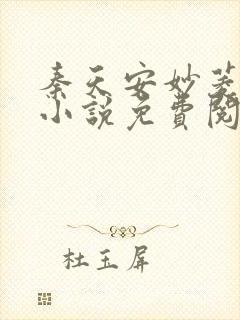 秦天安妙菱
小說免費閱
杜玉屏